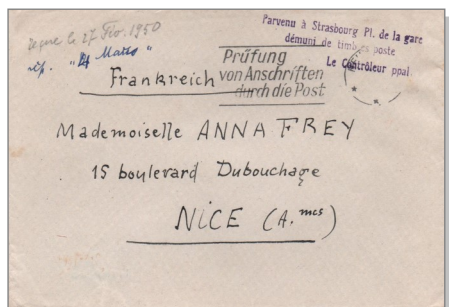 le 27 Fev. 1950
rép.
Parvenu à Strasbourg Pl. de la gare
démuni de timbres poste
Le Contrôleur ppal
Prüfung
von Anschriften
durch die Post
Frankreich
Mademoiselle ANNA FREY
15 boulevard Dubouchage
NICE (A. mes)